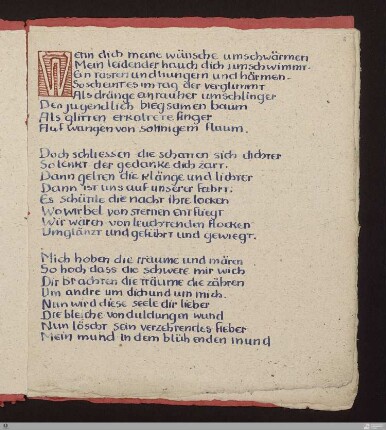 Wenn dich meine wünsche umschwärmen
Mein leidender hauch dich umschwimmt –
Ein tasten und hungern und härmen –
So scheint es im tag der verglimmt
Als dränge ein rauher umschlinger
Den jugendlich biegsamen baum
Als glitten erkaltete finger
Auf wangen von sonnigem flaum.
Doch schliessen die schatten sich dichter
So lenkt der gedanke dich zart.
Dann gelten die klänge und lichter
Dann ist uns auf unserer fahrt:
Es schüttle die nacht ihre locken
Wo wirbel von sternen entfliegt
Wir wären von leuchtenden flocken
Umglänzt und geführt und gewiegt.
Mich hoben die träume und mären
So hoch dass die schwere mir wich
Dir brachten die träume die zähren
Um andre um dich und um mich.
Nun wird diese seele dir lieber
Die bleiche von duldungen wund
Nun löscht sein verzehrendes fieber
Mein mund in dem blühenden mund